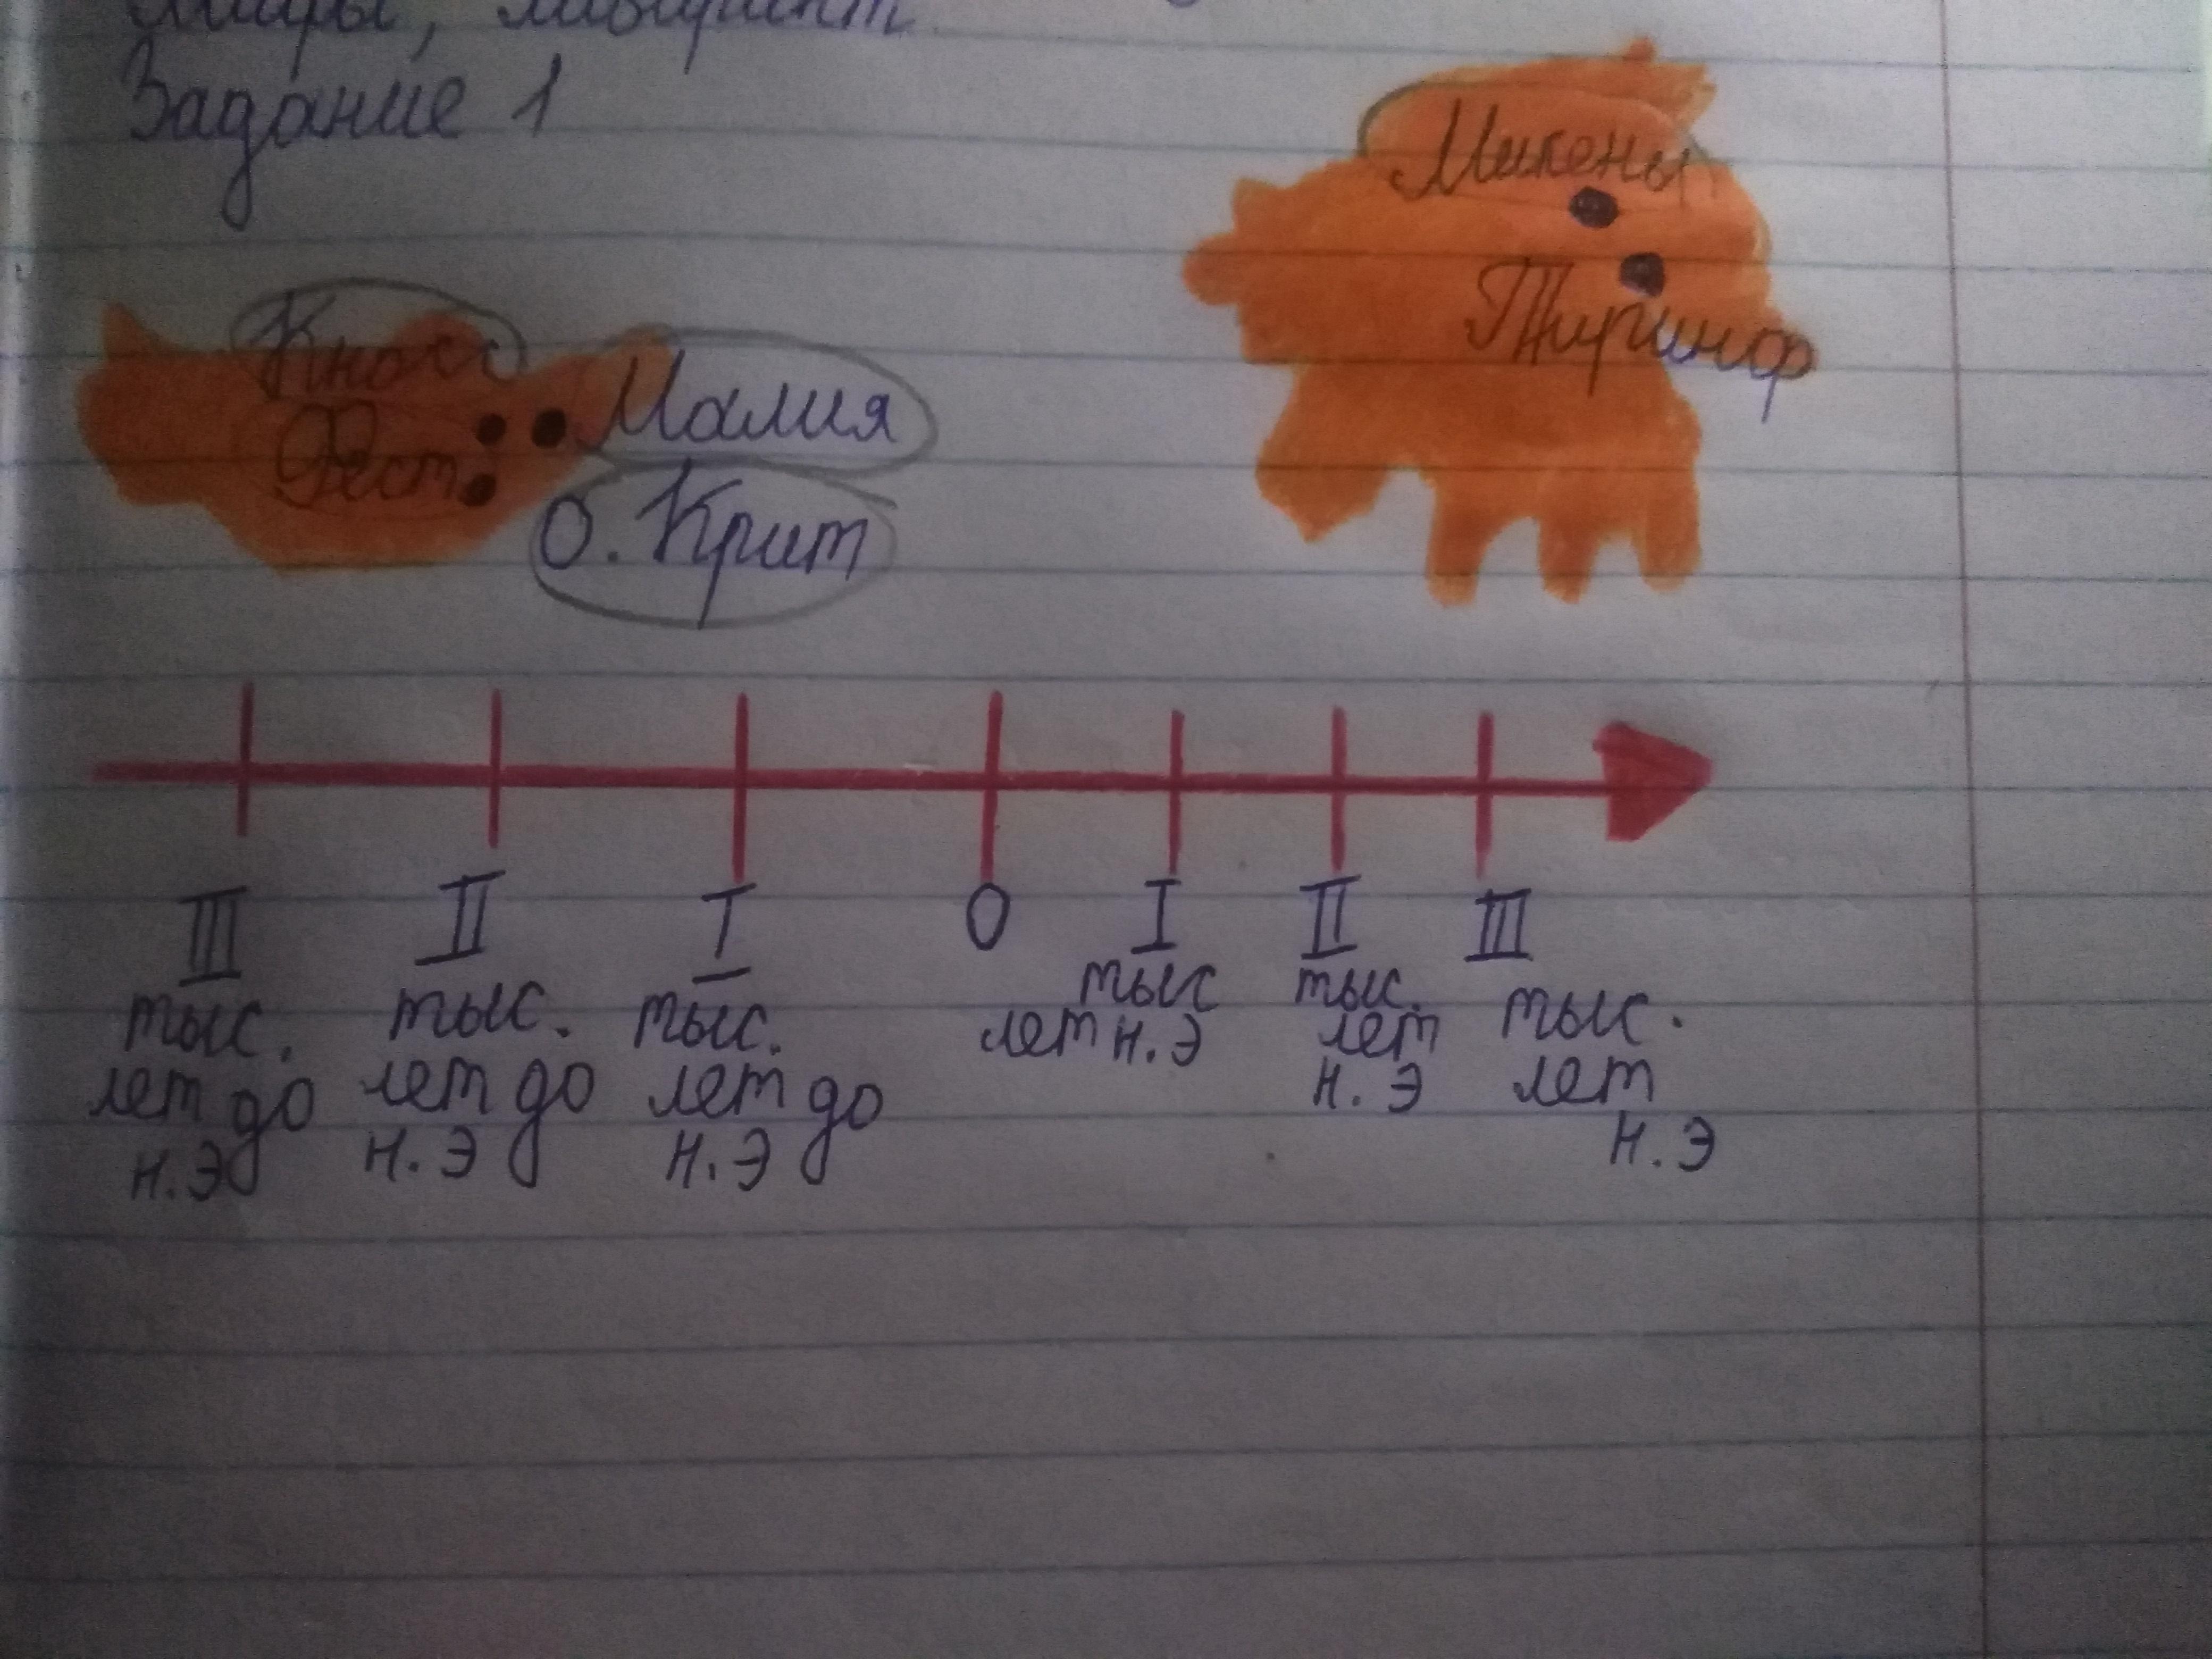 лабиринт
Задание 1
Микены
Тиринф
Кносс
Фест
Малия
О. Крит
III II I 0 I II III
тыс. тыс. тыс. тыс тыс. тыс.
лет до лет до лет до лет н.э лет лет
н.э н.э н.э н.э н.э